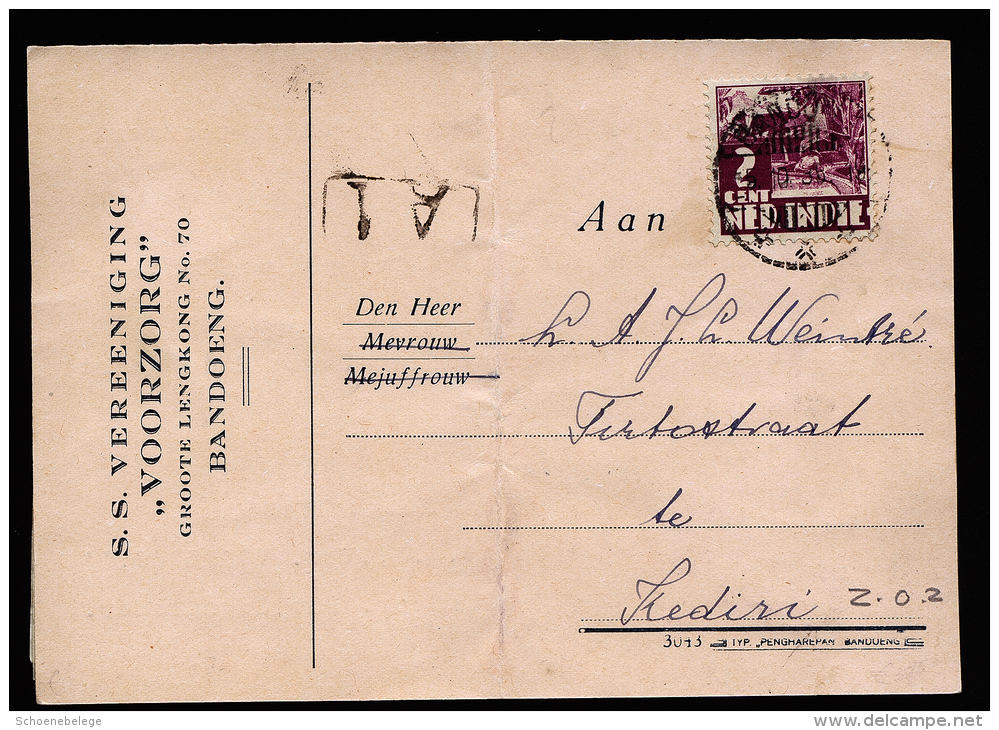 S. S. VEREENIGING
„VOORZORG”
GROOTE LENGKONG No. 70
BANDOENG.
A
1
2
CENT
NED. INDIE
Aan
Den Heer
Mevrouw
Mejuffrouw
h. A. J. h. Weintré.
Tirtostraat
te
Kediri
Z.O.Z
3043 TYP. „PENGHAREPAN” BANDOENG
Schoenebelege
delcampe.net